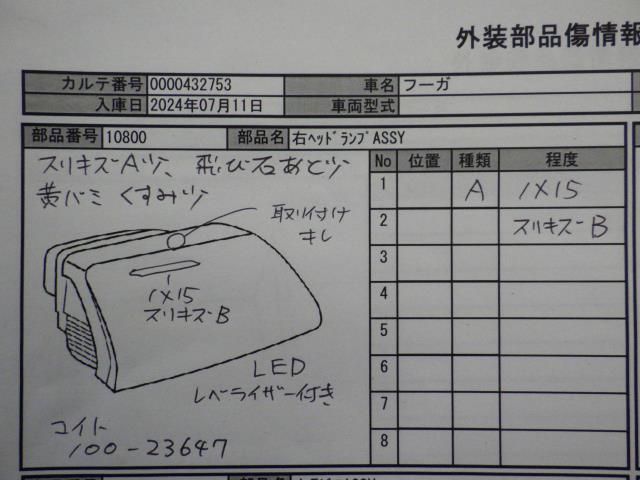 外装部品傷情報
カルテ番号 0000432753 車名 フーガ
入庫日 2024年07月11日 車両型式
部品番号 10800 部品名 右ﾍｯﾄﾞﾗﾝﾌﾟASSY
スリキズAツ、飛び石あとツ
黄バミ くすみツ
取り付け
キレ
1×15
スリキズB
LED
レベライザー付き
コイト
100-23647
No 位置 種類 程度
1 A 1×15
2 スリキズB
3
4
5
6
7
8